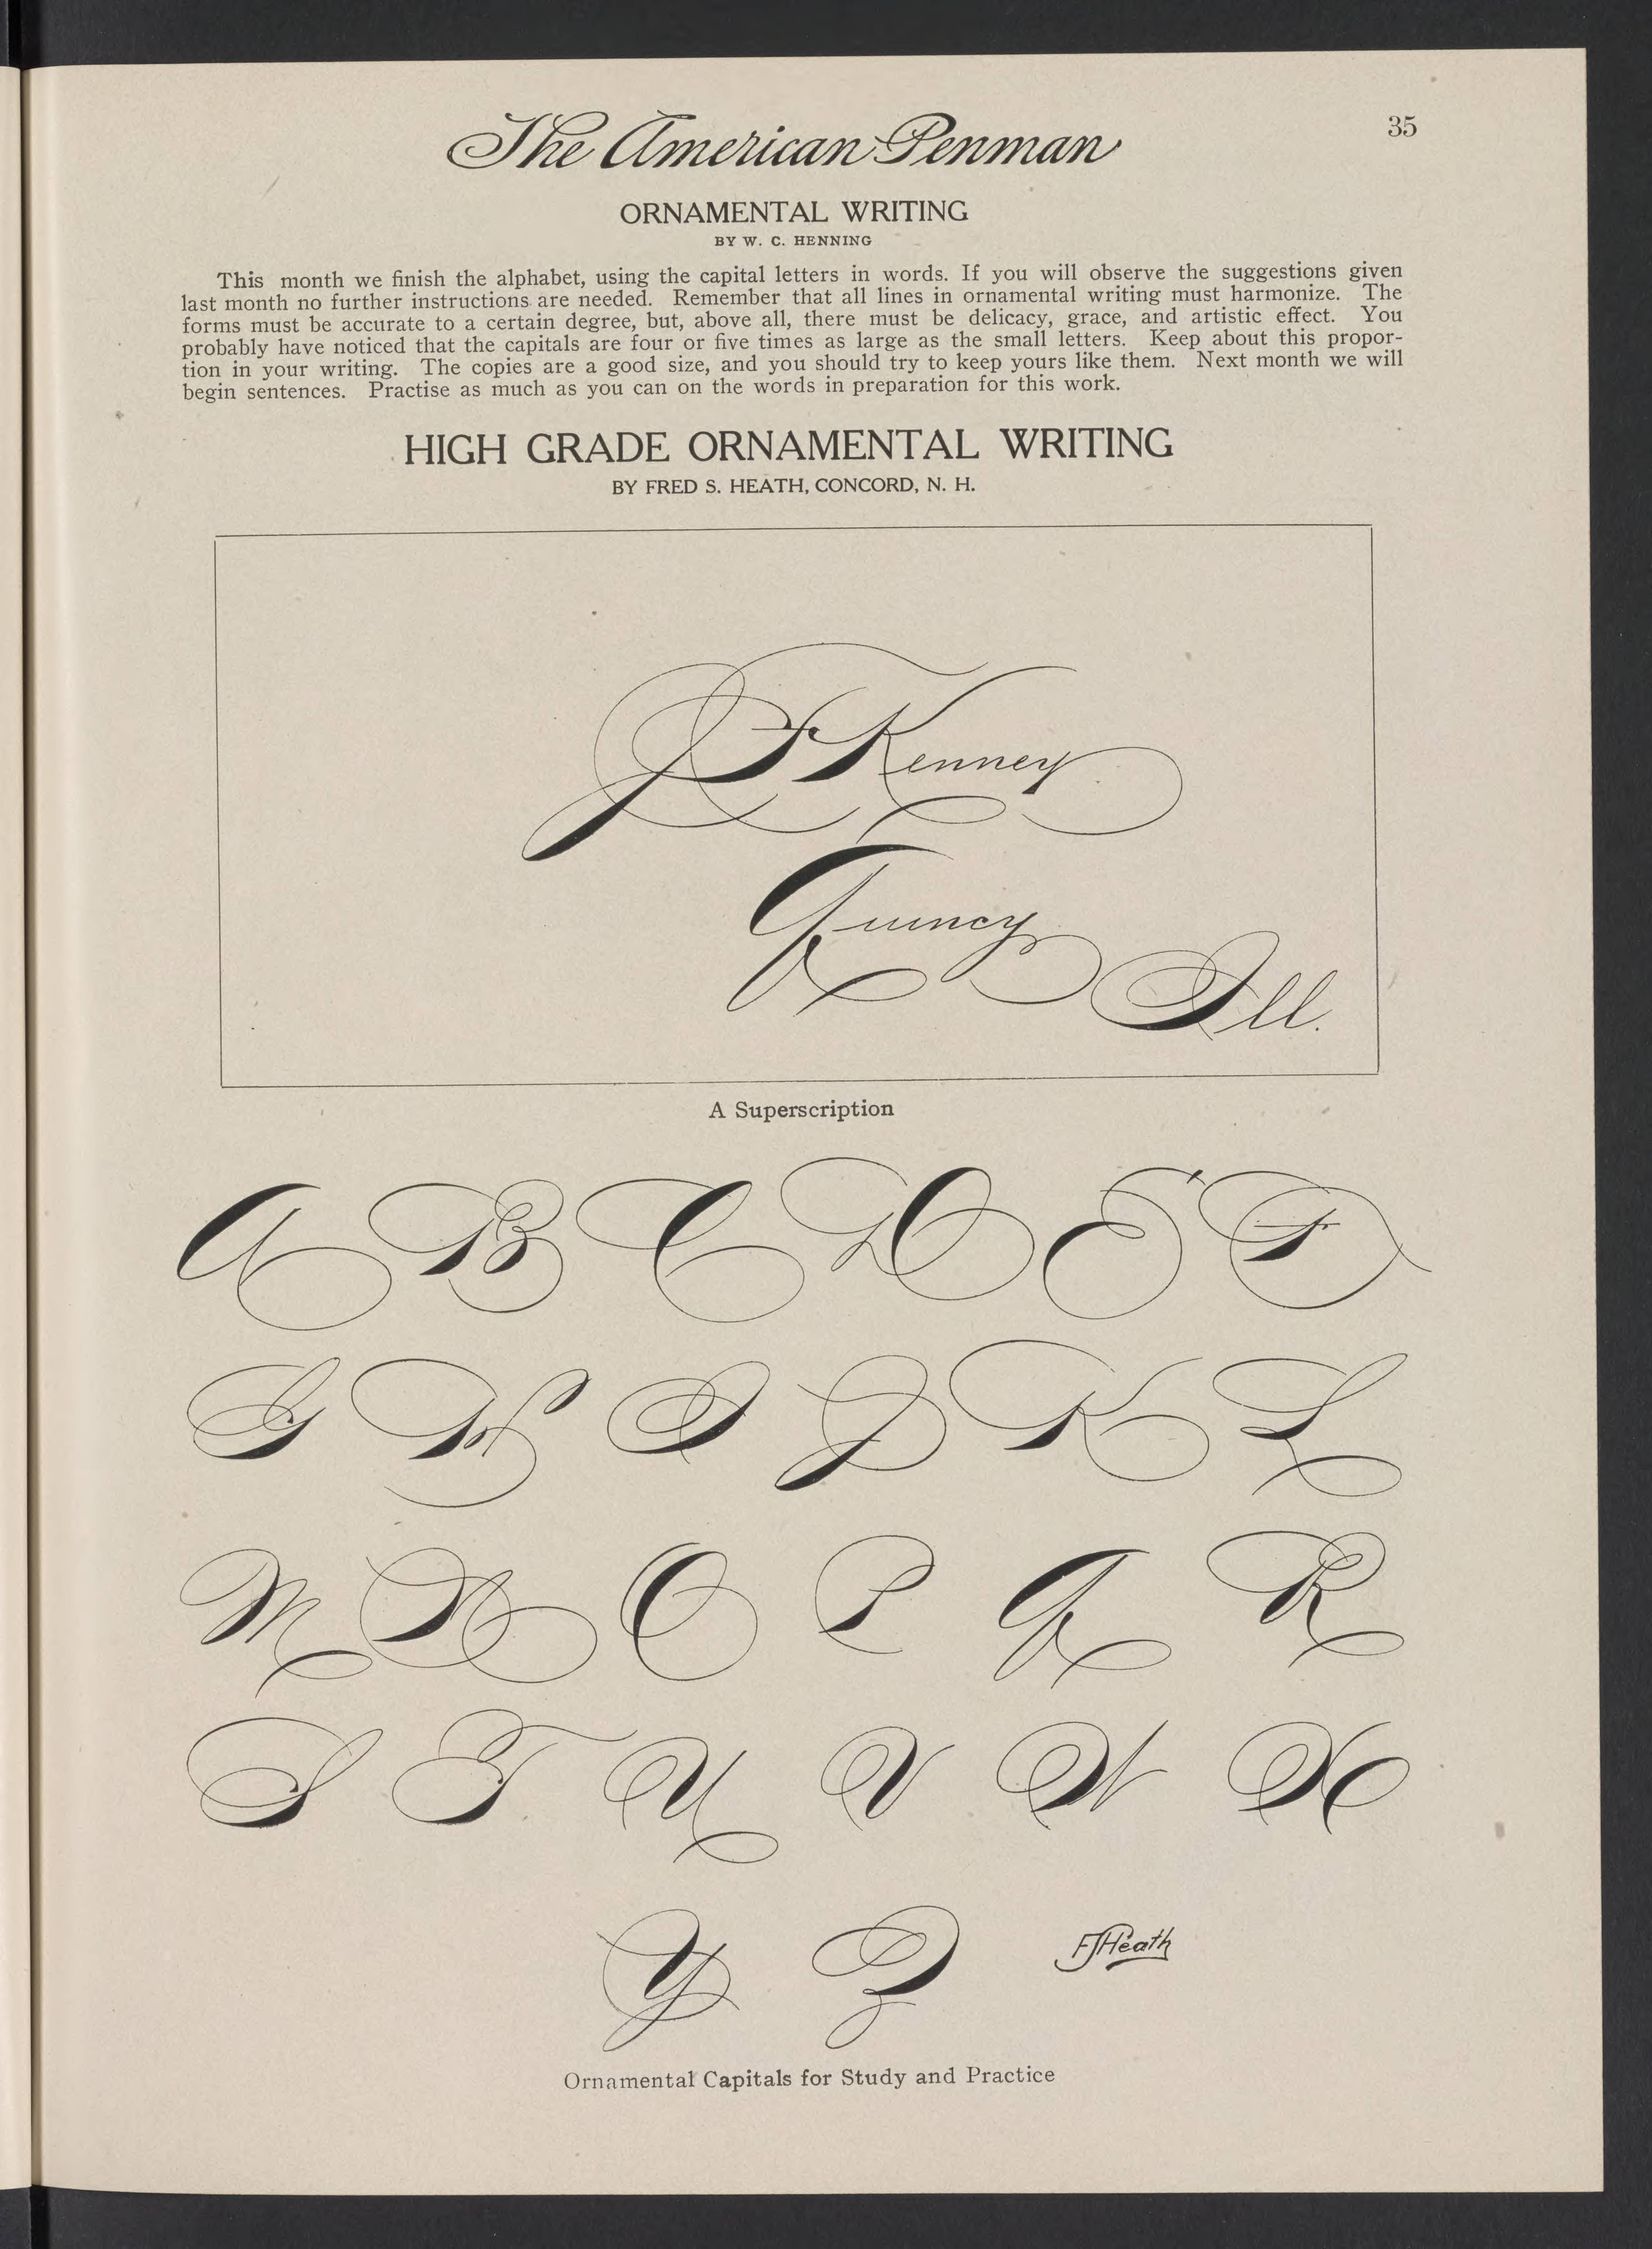 The American Penman
35
ORNAMENTAL WRITING
BY W. C. HENNING
This month we finish the alphabet, using the capital letters in words. If you will observe the suggestions given
last month no further instructions are needed. Remember that all lines in ornamental writing must harmonize. The
forms must be accurate to a certain degree, but, above all, there must be delicacy, grace, and artistic effect. You
probably have noticed that the capitals are four or five times as large as the small letters. Keep about this propor-
tion in your writing. The copies are a good size, and you should try to keep yours like them. Next month we will
begin sentences. Practise as much as you can on the words in preparation for this work.
HIGH GRADE ORNAMENTAL WRITING
BY FRED S. HEATH, CONCORD, N. H.
J F Kenney
Quincy
Ill.
A Superscription
A B C D E F
G H I J K L
M N O P Q R
S T U V W X
Y Z FSHeath
Ornamental Capitals for Study and Practice